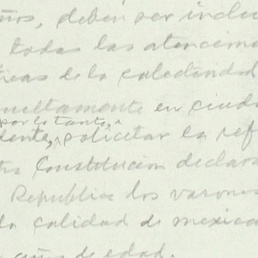 ños, deben ser inclu
todas las atencione
icas de la colectividad
multamente en ciuda
por lo tanto,
dente, solicitar la ref
tra Constitución declara
Republica los varones
la calidad de mexica
años de edad.